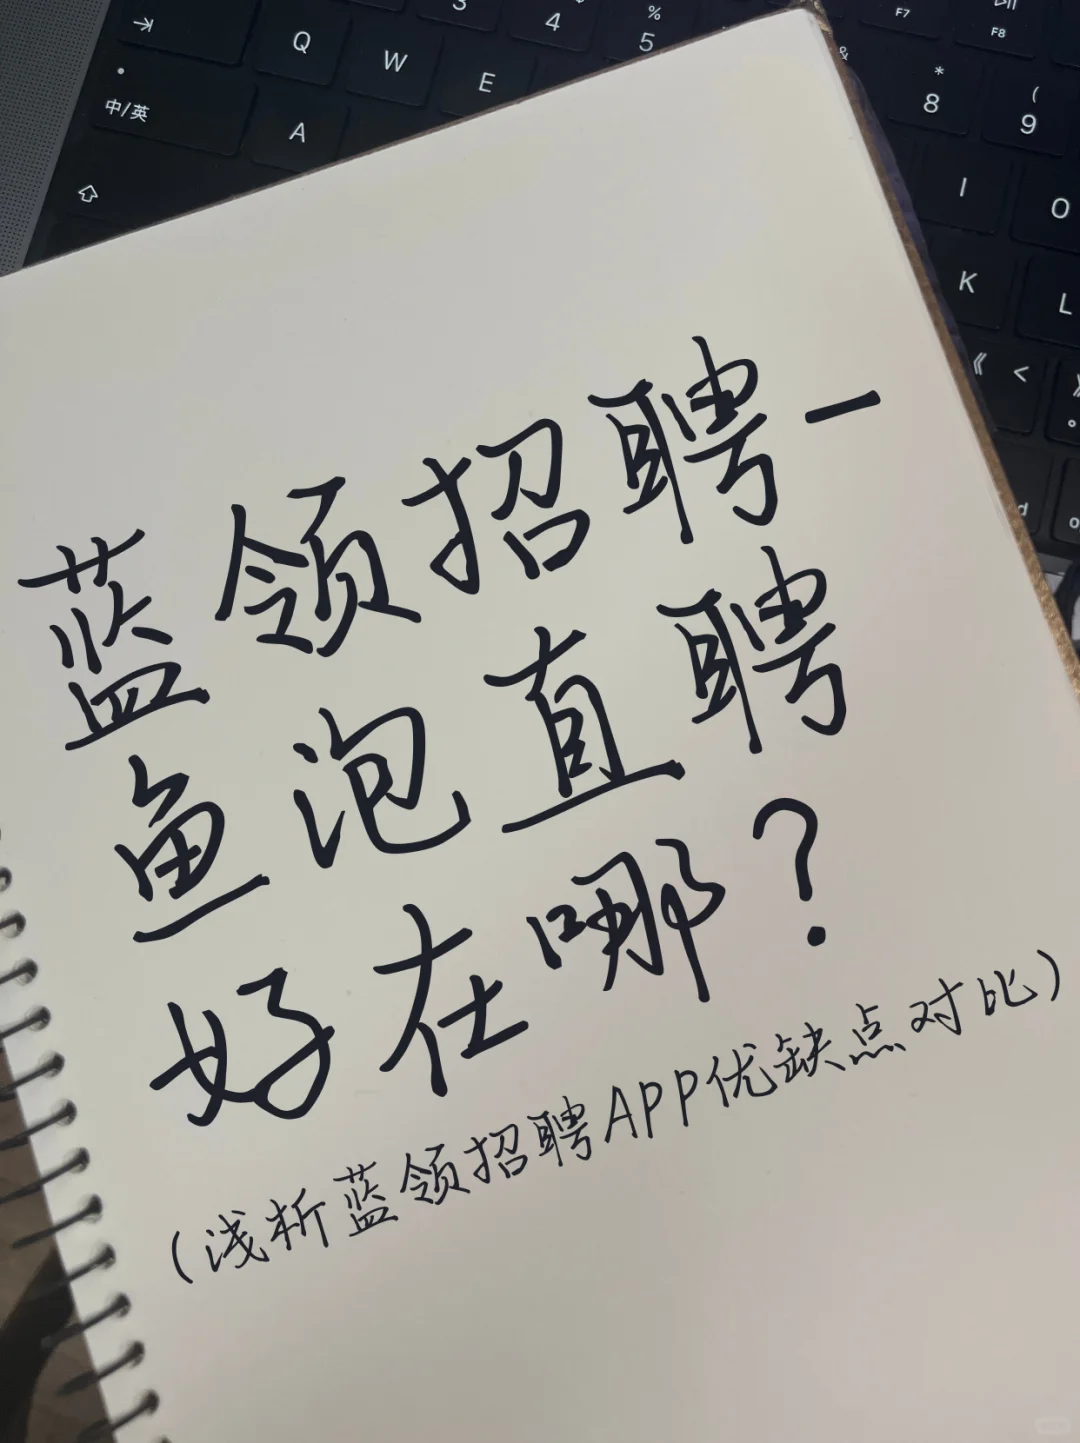 3
%
4
5
F7
F8
&
*
8
(
9
Q
W
E
中/英
A
I
O
K
L
《 <
d
蓝领招聘-
鱼泡直聘
好在哪?
(浅析蓝领招聘APP优缺点对比)